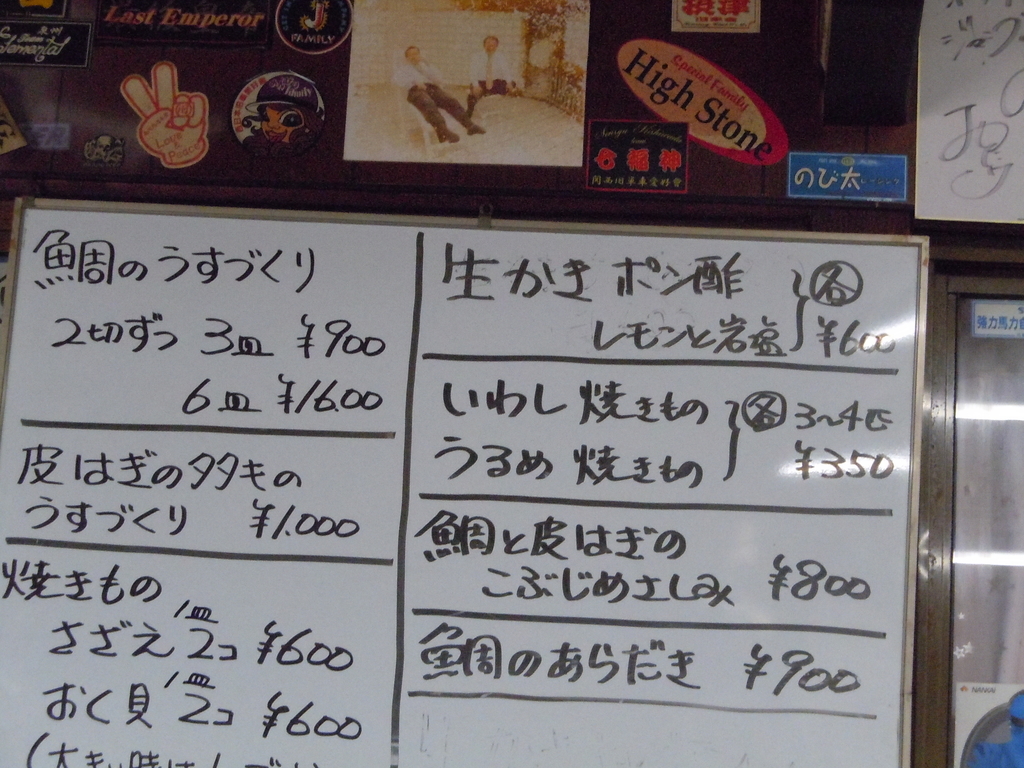 Last Emperor
FAMILY
Love &
Peace
Special Family
High Stone
七福神
のび太 レーシング
鯛のうすづくり
2切ずつ 3皿 ¥900
6皿 ¥1,600
皮はぎのタタキの
うすづくり ¥1,000
焼きもの
さざえ 1皿 2コ ¥600
おく貝 1皿 2コ ¥600
生かき ポン酢 各
レモンと岩塩 ¥600
いわし 焼きもの 各 3〜4匹
うるめ 焼きもの ¥350
鯛と皮はぎの
こぶじめさしみ ¥800
鯛のあらだき ¥900
強力馬力